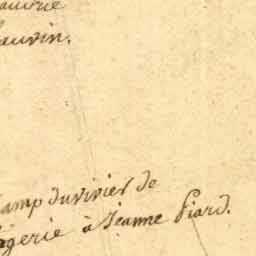 auvin.
amp duvivier de
gerie à Jeanne Piard.